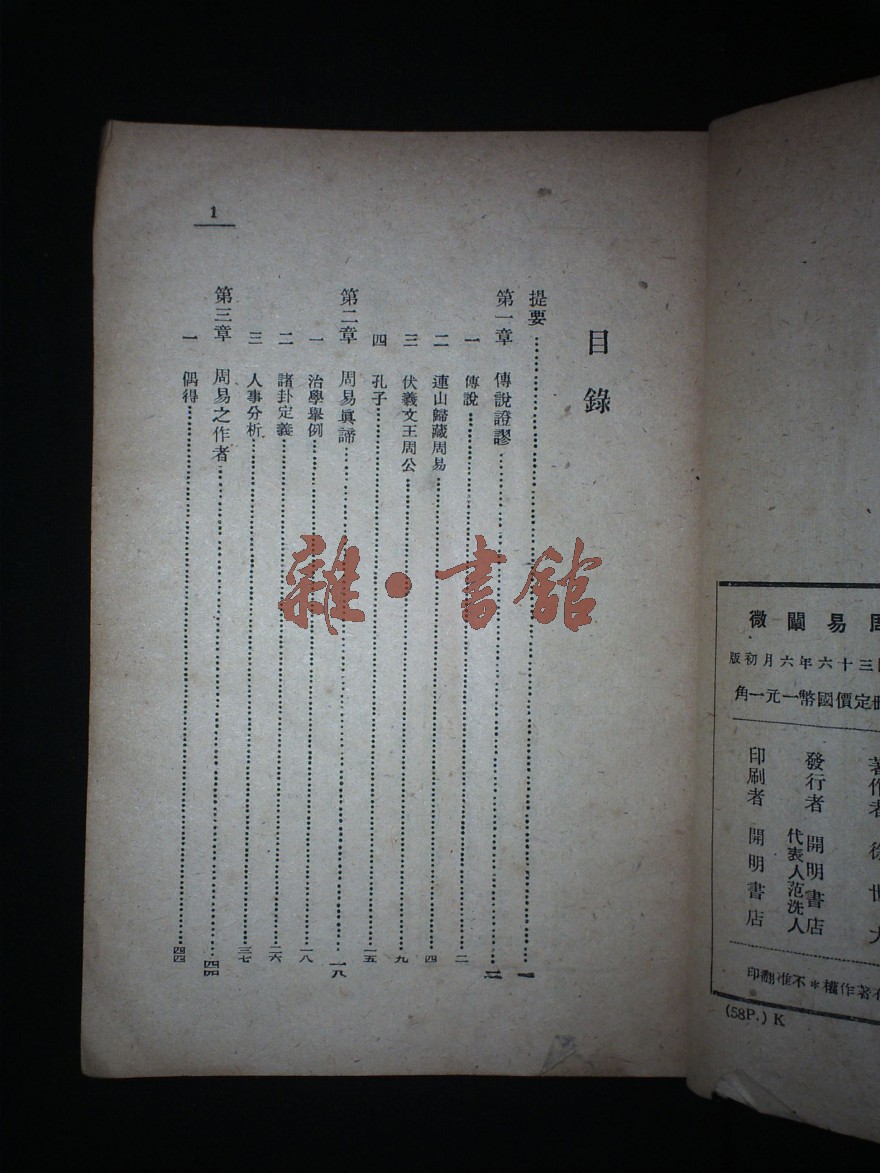 1
目錄
提要……一
第一章 傳說證謬……二
一 傳說……二
二 連山歸藏周易……四
三 伏羲文王周公……九
四 孔子……一五
第二章 周易眞諦……一八
一 治學舉例……一八
二 諸卦定義……二六
三 人事分析……三七
第三章 周易之作者……四四
一 偶得……四四
雜·書館
周易闡微
三十六年六月初版
定價國幣一元一角
著作者 徐世大
發行者 開明書店
代表人范洗人
印刷者 開明書店
有著作權*不准翻印
(58P.) K